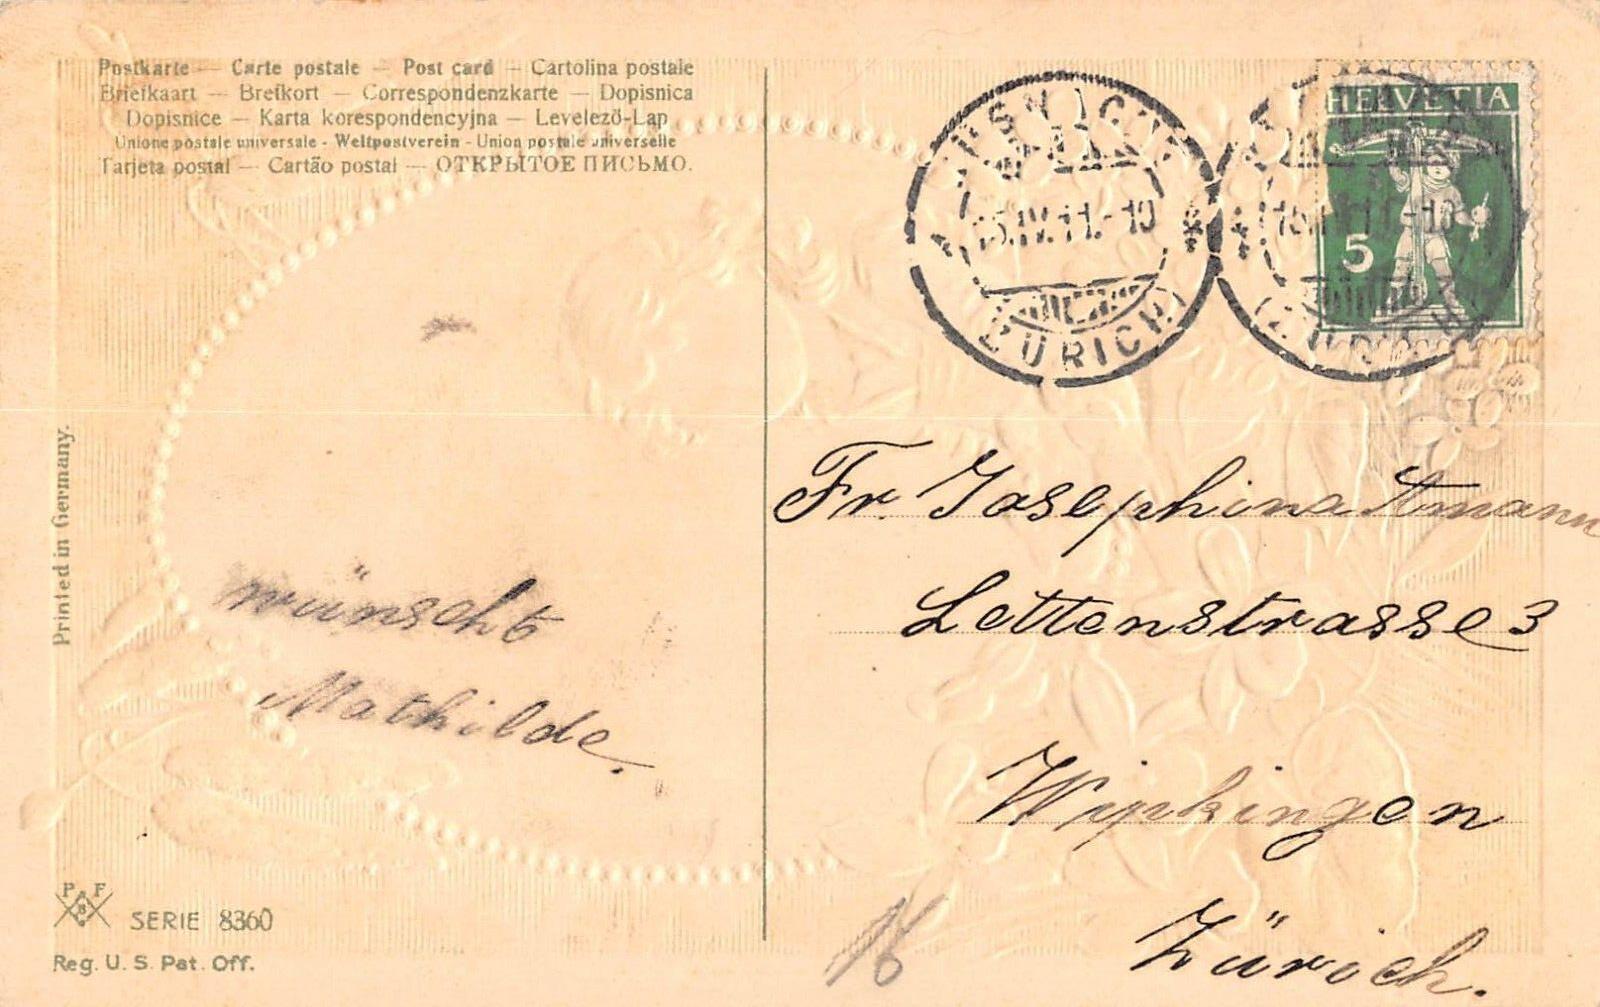 Postkarte — Carte postale — Post card — Cartolina postale
Briefkaart — Brefkort — Correspondenzkarte — Dopisnica
Dopisnice — Karta korespondencyjna — Levelező-Lap
Unione postale universale - Weltpostverein - Union postale universelle
Tarjeta postal — Cartão postal — ОТКРЫТОЕ ПИСЬМО.
HELVETIA
5
15.IV.11.-10
(ZÜRICH)
Printed in Germany.
Fr. Josephina Ammann
Lettenstrasse 3
Wipkingen
Zürich.
wünscht
Mathilde.
P F
B
SERIE 8360
Reg. U. S. Pat. Off.
16